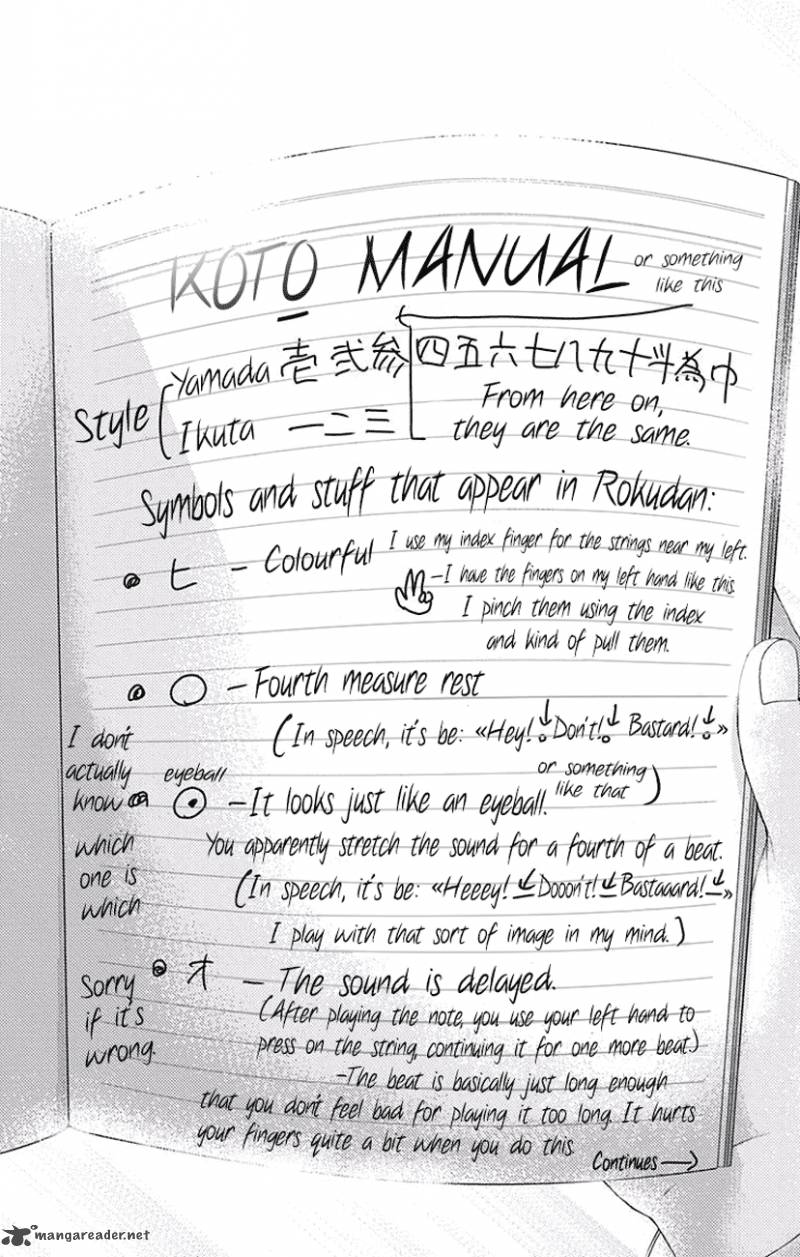 KOTO MANUAL or something like this
Style
Yamada 壱 弐 参 四五六七八九十斗為巾
Ikuta 一二三
From here on,
they are the same.
Symbols and stuff that appear in Rokudan:
ヒ – Colourful
I use my index finger for the strings near my left.
–I have the fingers on my left hand like this.
I pinch them using the index
and kind of pull them.
○ – Fourth measure rest
(In speech, it's be: «Hey!↓Don't!↓ Bastard!↓»
or something like that)
I don't
actually
know
which
one is
which
eyeball
–It looks just like an eyeball.
You apparently stretch the sound for a fourth of a beat.
(In speech, it's be: «Heeey!↓Dooon't!↓Bastaaard!↓»
I play with that sort of image in my mind.)
Sorry
if it's
wrong.
オ – The sound is delayed.
(After playing the note, you use your left hand to
press on the string, continuing it for one more beat.)
–The beat is basically just long enough
that you don't feel bad for playing it too long. It hurts
your fingers quite a bit when you do this.
Continues→
mangareader.net